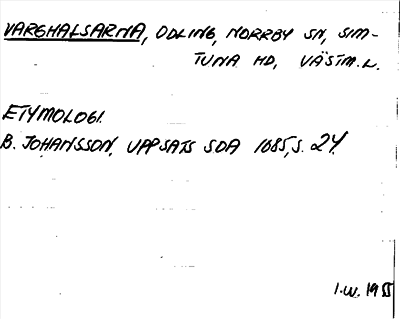 VARGHALSARNA, ODLING, NORRBY SN, SIM-
TUNA HD, VÄSTM. L.
ETYMOLOGI.
B. JOHANSSON, UPPSATS SOA 1085, S. 24.
I.W. 1955